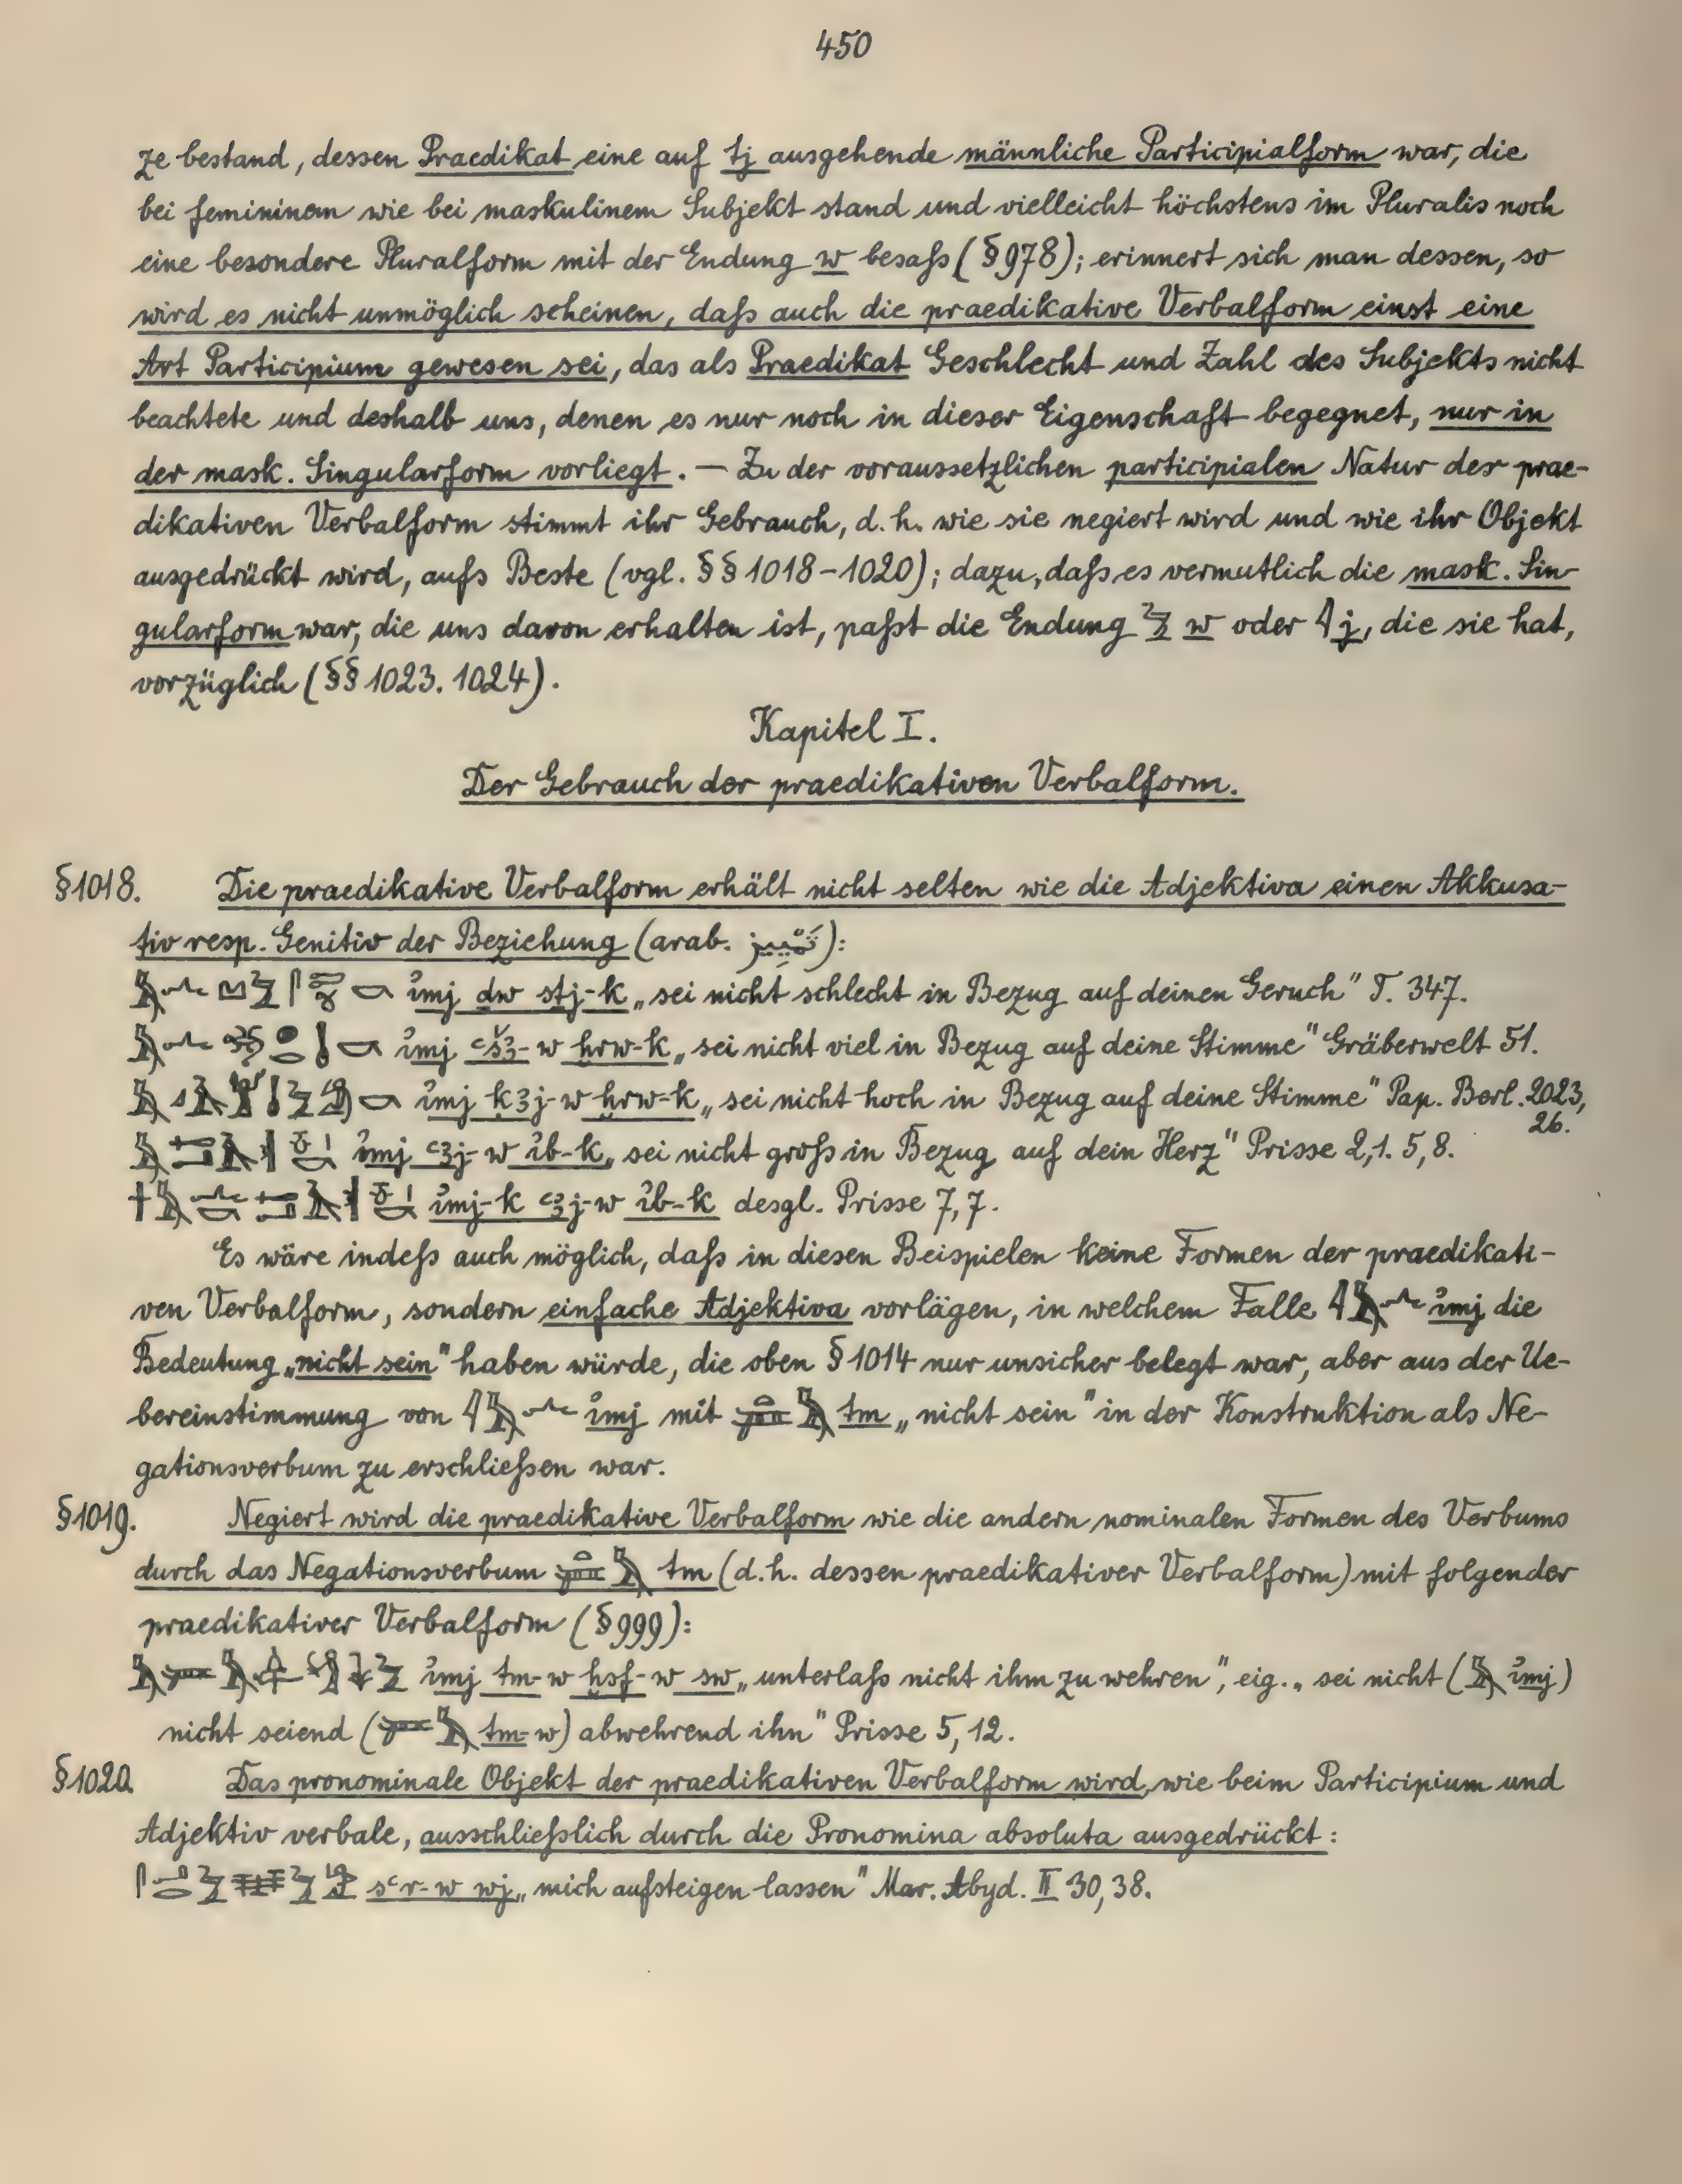 450
ze bestand, dessen Praedikat eine auf tj ausgehende männliche Participialform war, die
bei femininem wie bei maskulinem Subjekt stand und vielleicht höchstens im Pluralis noch
eine besondere Pluralform mit der Endung w besaß (§978); erinnert sich man dessen, so
wird es nicht unmöglich scheinen, daß auch die praedikative Verbalform einst eine
Art Participium gewesen sei, das als Praedikat Geschlecht und Zahl des Subjekts nicht
beachtete und deshalb uns, denen es nur noch in dieser Eigenschaft begegnet, nur in
der mask. Singularform vorliegt. — Zu der voraussetzlichen participialen Natur der prae-
dikativen Verbalform stimmt ihr Gebrauch, d.h. wie sie negiert wird und wie ihr Objekt
ausgedrückt wird, aufs Beste (vgl. §§1018-1020); dazu, daß es vermutlich die mask. Sin-
gularform war, die uns davon erhalten ist, paßt die Endung w oder j, die sie hat,
vorzüglich (§§1023. 1024).
Kapitel I.
Der Gebrauch der praedikativen Verbalform.
§1018. Die praedikative Verbalform erhält nicht selten wie die Adjektiva einen Akkusa-
tiv resp. Genitiv der Beziehung (arab. تَمْيِيز):
ỉmj dw stj-k „sei nicht schlecht in Bezug auf deinen Geruch" T. 347.
ỉmj ꜥšꜣ-w ḫrw-k „sei nicht viel in Bezug auf deine Stimme" Gräberwelt 51.
ỉmj kꜣj-w ḫrw-k „sei nicht hoch in Bezug auf deine Stimme" Pap. Berl. 2023,
26.
ỉmj ꜥꜣj-w ỉb-k „sei nicht groß in Bezug auf dein Herz" Prisse 2,1. 5,8.
ỉmj-k ꜥꜣj-w ỉb-k desgl. Prisse 7,7.
Es wäre indeß auch möglich, daß in diesen Beispielen keine Formen der praedikati-
ven Verbalform, sondern einfache Adjektiva vorlägen, in welchem Falle ỉmj die
Bedeutung „nicht sein" haben würde, die oben §1014 nur unsicher belegt war, aber aus der Ue-
bereinstimmung von ỉmj mit tm „nicht sein" in der Konstruktion als Ne-
gationsverbum zu erschließen war.
§1019. Negiert wird die praedikative Verbalform wie die andern nominalen Formen des Verbums
durch das Negationsverbum tm (d.h. dessen praedikativer Verbalform) mit folgender
praedikativer Verbalform (§999):
ỉmj tm-w ḫsf-w sw „unterlaß nicht ihm zu wehren", eig. „sei nicht (ỉmj)
nicht seiend (tm-w) abwehrend ihn" Prisse 5,12.
§1020. Das pronominale Objekt der praedikativen Verbalform wird, wie beim Participium und
Adjektiv verbale, ausschließlich durch die Pronomina absoluta ausgedrückt:
sꜥr-w wj „mich aufsteigen lassen" Mar. Abyd. II 30,38.